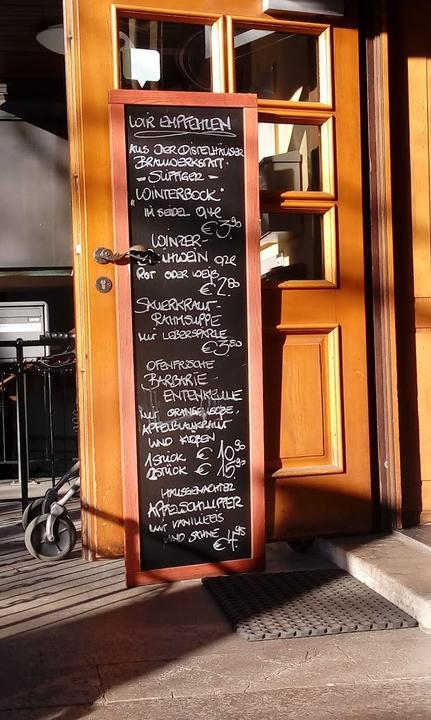 WIR EMPFEHLEN
AUS DER DISTELHÄUSER
BRAUWERKSTATT:
- SÜFFIGER -
"WINTERBOCK"
IM SEIDEL 0,4L
€ 3.90
WINZER-
GLÜHWEIN 0,2L
ROT ODER WEIß
€ 2.80
SAUERKRAUT-
RAHMSUPPE
MIT LEBERSPÄTZLE
€ 3.80
OFENFRISCHE
BARBARIE-
ENTENKEULE
MIT ORANGENSOßE,
APFELBLAUKRAUT
UND KLÖßEN
1 STÜCK € 10.90
2 STÜCK € 15.90
HAUSGEMACHTER
APFELSCHLUPFER
MIT VANILLEEIS
UND SAHNE € 4.95